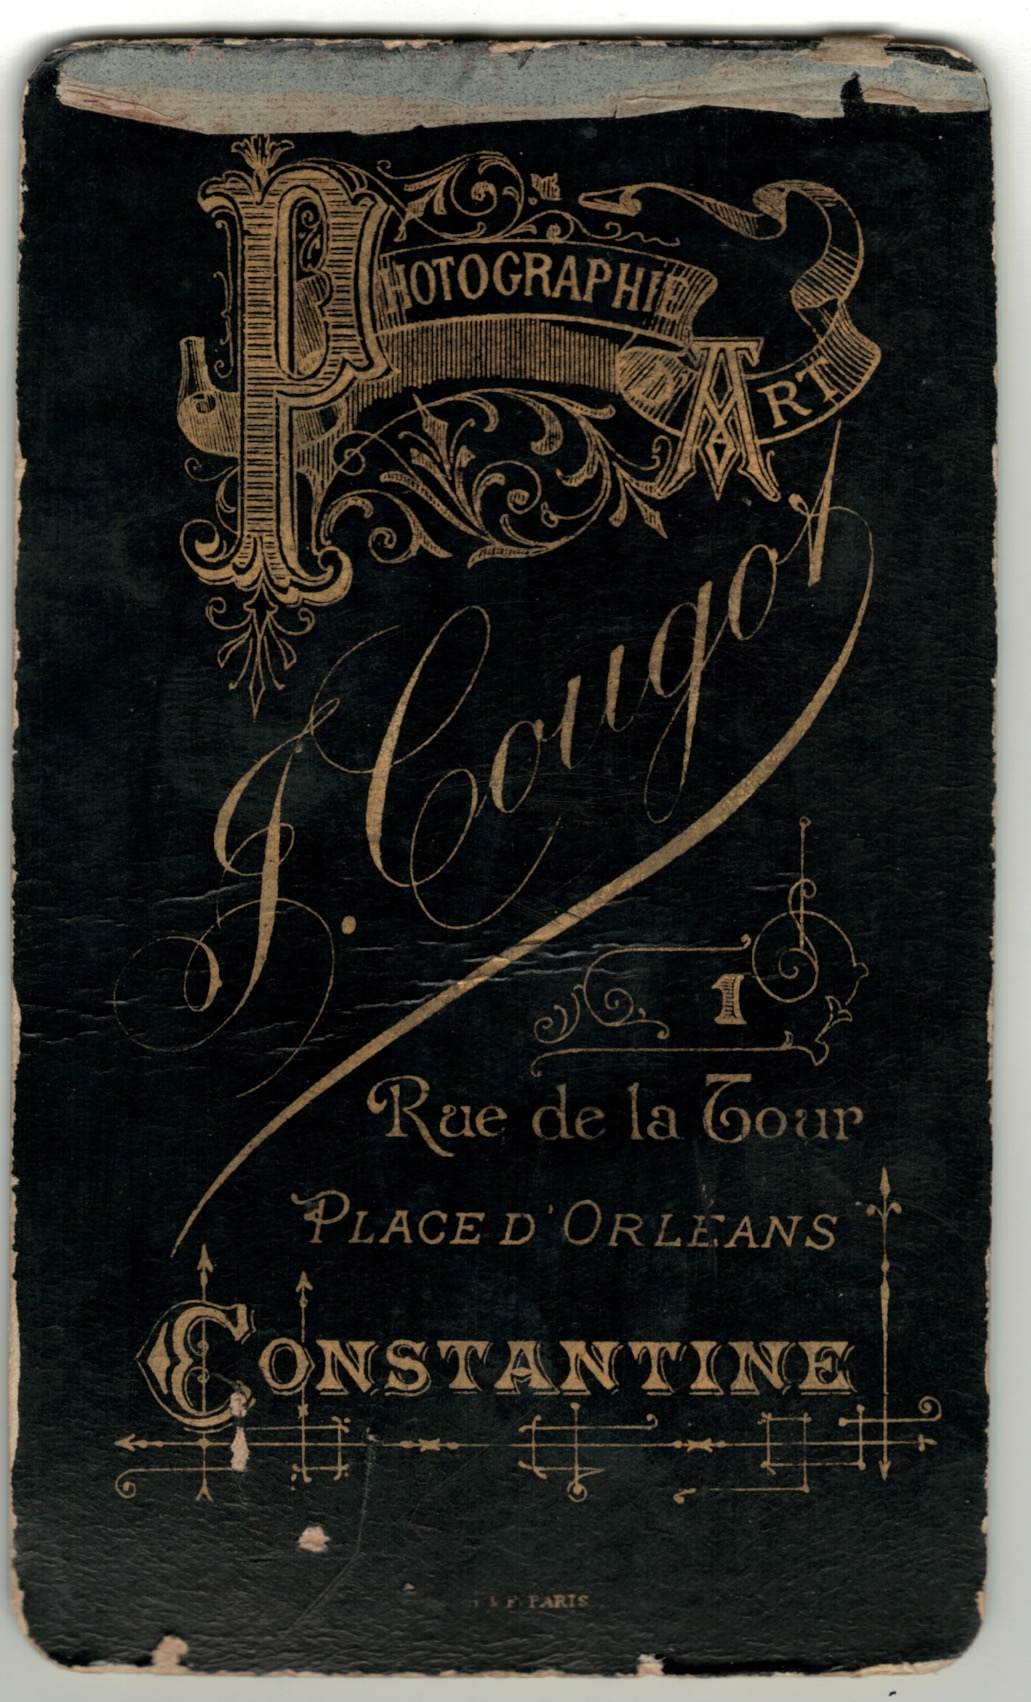 PHOTOGRAPHIE
ART
J. Cougot
1
Rue de la Tour
PLACE D'ORLEANS
CONSTANTINE
PARIS